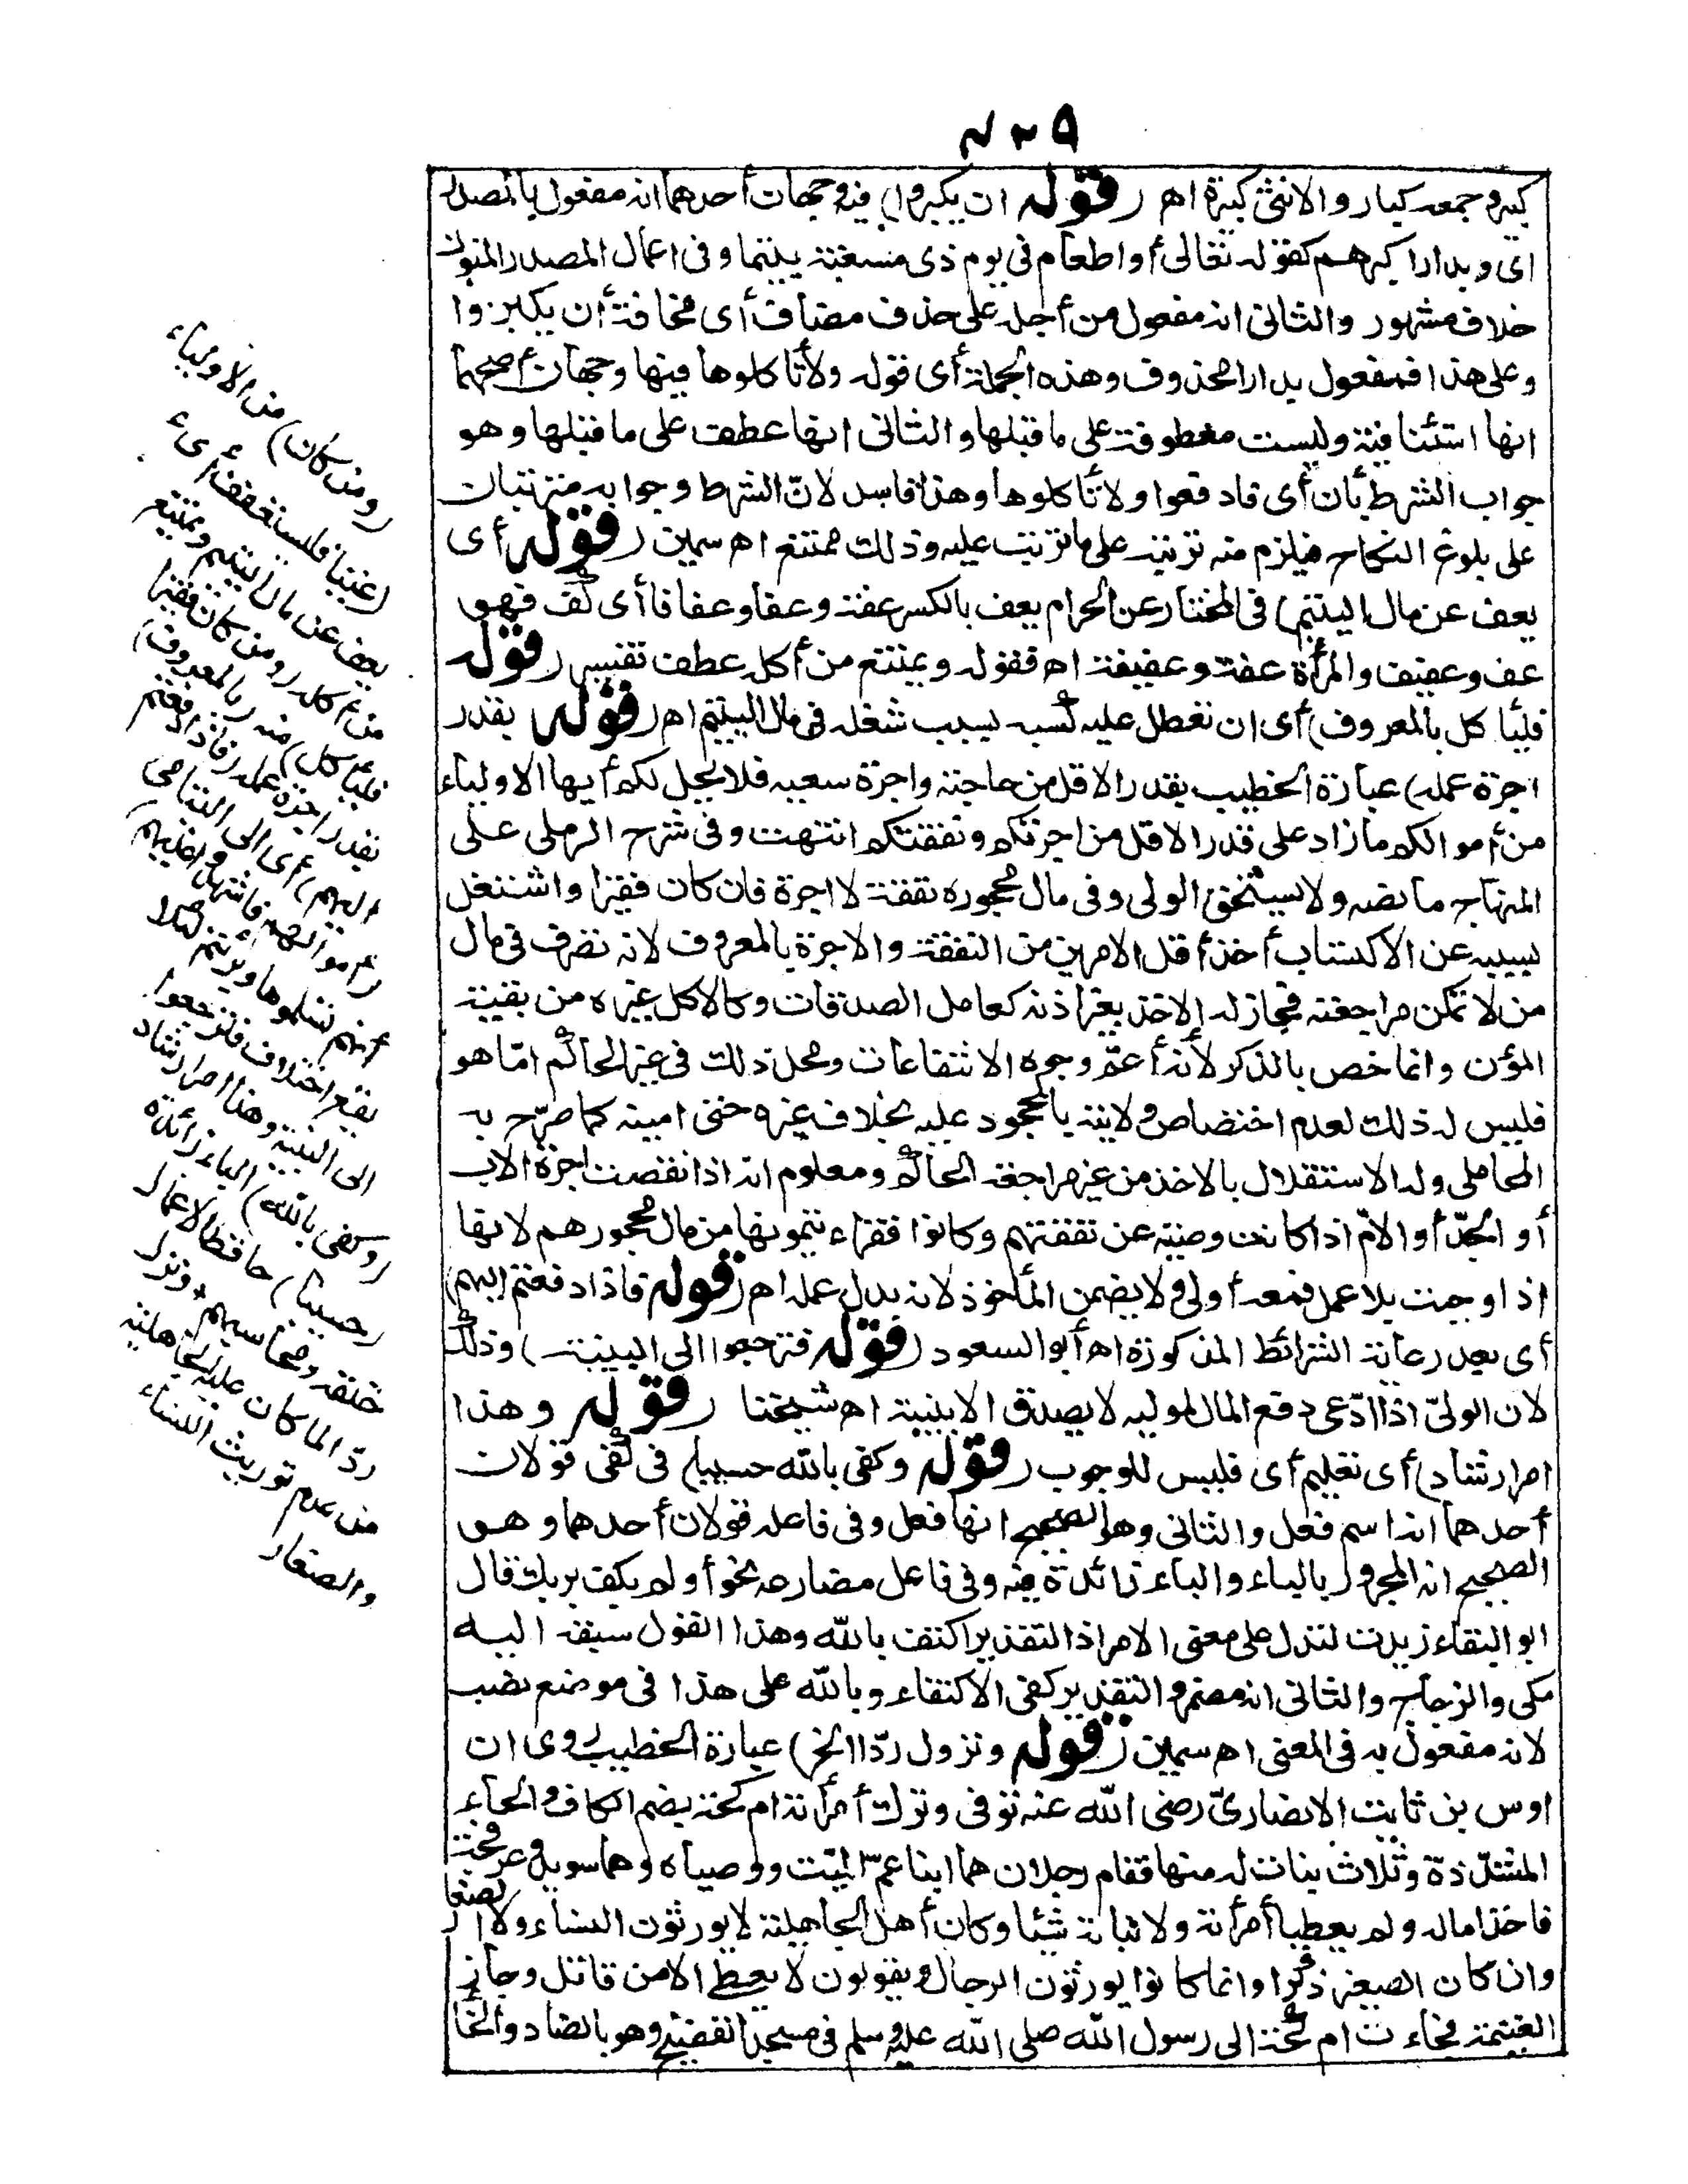 كبير وجمعه كبار والانثى كبيرة اه (قوله ان يكبروا) فيه وجهان أحدهما انه مفعول بالمصدر
اى وبدارا كبرهم كقوله تعالى أو اطعام فى يوم ذى مسغبة يتيما وفى اعمال المصدر المنون
خلاف مشهور والثانى انه مفعول من أجله على حذف مضاف أى مخافة أن يكبروا
وعلى هذا فمفعول بدارا محذوف وهذه الجملة أى قوله ولا تأكلوها فيها وجهان أصحهما
انها استئنافية وليست معطوفة على ما قبلها والثانى انها عطف على ما قبلها وهو
جواب الشرط بأن أى فادفعوا ولا تأكلوها وهذا فاسد لانّ الشرط وجوابه مترتبان
على بلوغ النكاح فيلزم منه ترتبه على ما ترتب عليه وذلك ممتنع اه سمين (قوله أى
يعف عن مال اليتيم) فى المختار عن الحرام يعف بالكسر عفة وعفا وعفافا أى كف فهو
عف وعفيف والمرأة عفة وعفيفة اه فقوله ويمتنع من أكله عطف تفسير (قوله
فليأكل بالمعروف) أى ان تعطل عليه كسبه بسبب شغله فى مال اليتيم اه (قوله بقدر
اجرة عمله) عبارة الخطيب بقدر الاقل من حاجته واجرة سعيه فلا يحل لكم أيها الاولياء
من أموالكم ما زاد على قدر الاقل من اجرتكم ونفقتكم انتهت وفى شرح الرملى على
المنهاج ما نصه ولا يستحق الولى فى مال محجوره نفقة لا اجرة فان كان فقيرا واشتغل
بسببه عن الاكتساب أخذ أقل الامرين من النفقة والاجرة بالمعروف لانه تصرف فى مال
من لا تمكن مراجعته فجاز له الاخذ بغير اذنه كعامل الصدقات وكالاكل غيره من بقية
المؤن وانما خص بالذكر لأنه أعمّ وجوه الانتفاعات ومحل ذلك فى غير الحاكم امّا هو
فليس له ذلك لعدم اختصاص ولايته بالمحجور عليه بخلاف غيره حتى امينه كما صرّح به
المحاملى وله الاستقلال بالاخذ من غير مراجعة الحاكم ومعلوم انه اذا نقصت اجرة الاب
أو الجدّ أو الامّ اذا كانت وصية عن نفقتهم وكانوا فقراء يتمونها من مال محجورهم لانها
اذا وجبت بلا عمل فمعه أولى ولا يضمن المأخوذ لانه بدل عمله اه (قوله فاذا دفعتم اليهم)
أى بعد رعاية الشرائط المذكورة اه أبو السعود (قوله فترجعوا الى البينة) وذلك
لان الولىّ اذا ادّعى دفع المال لموليه لا يصدق الا ببينة اه شيخنا (قوله وهذا
امر ارشاد) أى تعليم أى فليس للوجوب (قوله وكفى بالله حسيبا) فى كفى قولان
أحدهما انه اسم فعل والثانى وهو الصحيح انها فعل وفى فاعله قولان أحدهما وهو
الصحيح انه المجرور بالباء والباء زائدة فيه وفى فاعل مضارعه نحو أولم يكف بربك قال
ابو البقاء زيدت لتدل على معنى الامر اذ التقدير اكتف بالله وهذا القول سبقه اليه
مكى والزجاج والثانى انه مضمر والتقدير كفى الاكتفاء وبالله على هذا فى موضع نصب
لانه مفعول به فى المعنى اه سمين (قوله ونزل ردّا الخ) عبارة الخطيب روى ان
اوس بن ثابت الانصارىّ رضى الله عنه توفى وترك أمرأته ام كحة بضم الكاف والحاء
المشدّدة وثلاث بنات له منها فقام رجلان هما ابنا عمّ الميّت ووصياه وهما سويد وعرفجة
فاخذا ماله ولم يعطيا أمرأته ولا بناته شيئا وكان أهل الجاهلية لا يورثون النساء ولا الصغار
وان كان الصغير ذكرا وانما كانوا يورثون الرجال ويقولون لا يعطى الا من قاتل وحاز
الغنيمة فجاءت ام كحة الى رسول الله صلى الله عليه وسلم فى مسجد الفضيخ وهو بالضاد والخا
(ومن كان) من الاولياء
(غنيا فليستعفف) أى
يعف عن مال اليتيم ويمتنع
من أكله (ومن كان فقيرا
فليأكل) منه (بالمعروف)
بقدر اجرة عمله (فاذا دفعتم
اليهم) أى الى اليتامى
(أموالهم فاشهدوا عليهم)
أنهم تسلموها وبرئتم لئلا
يقع اختلاف فترجعوا
الى البينة وهذا امر ارشاد
(وكفى بالله) الباء زائدة
(حسيبا) حافظا لاعمال
خلقه ومحاسبهم ونزل
ردّا لما كان عليه الجاهلية
من عدم توريث النساء
والصغار